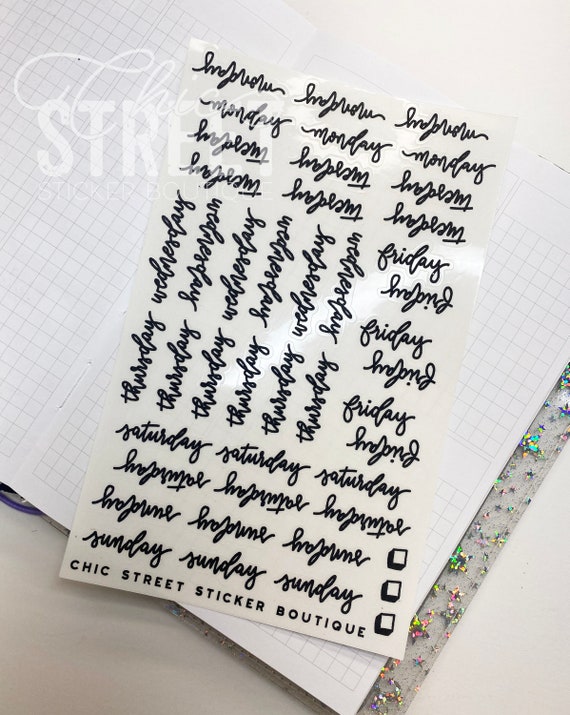 Chic
STREET
STICKER BOUTIQUE
monday monday monday
monday monday monday
tuesday tuesday tuesday
tuesday tuesday tuesday
wednesday wednesday wednesday wednesday wednesday wednesday
friday
friday
friday
friday
friday
friday
thursday thursday thursday thursday thursday thursday
saturday saturday saturday
saturday saturday saturday
sunday sunday sunday
sunday sunday sunday
CHIC STREET STICKER BOUTIQUE